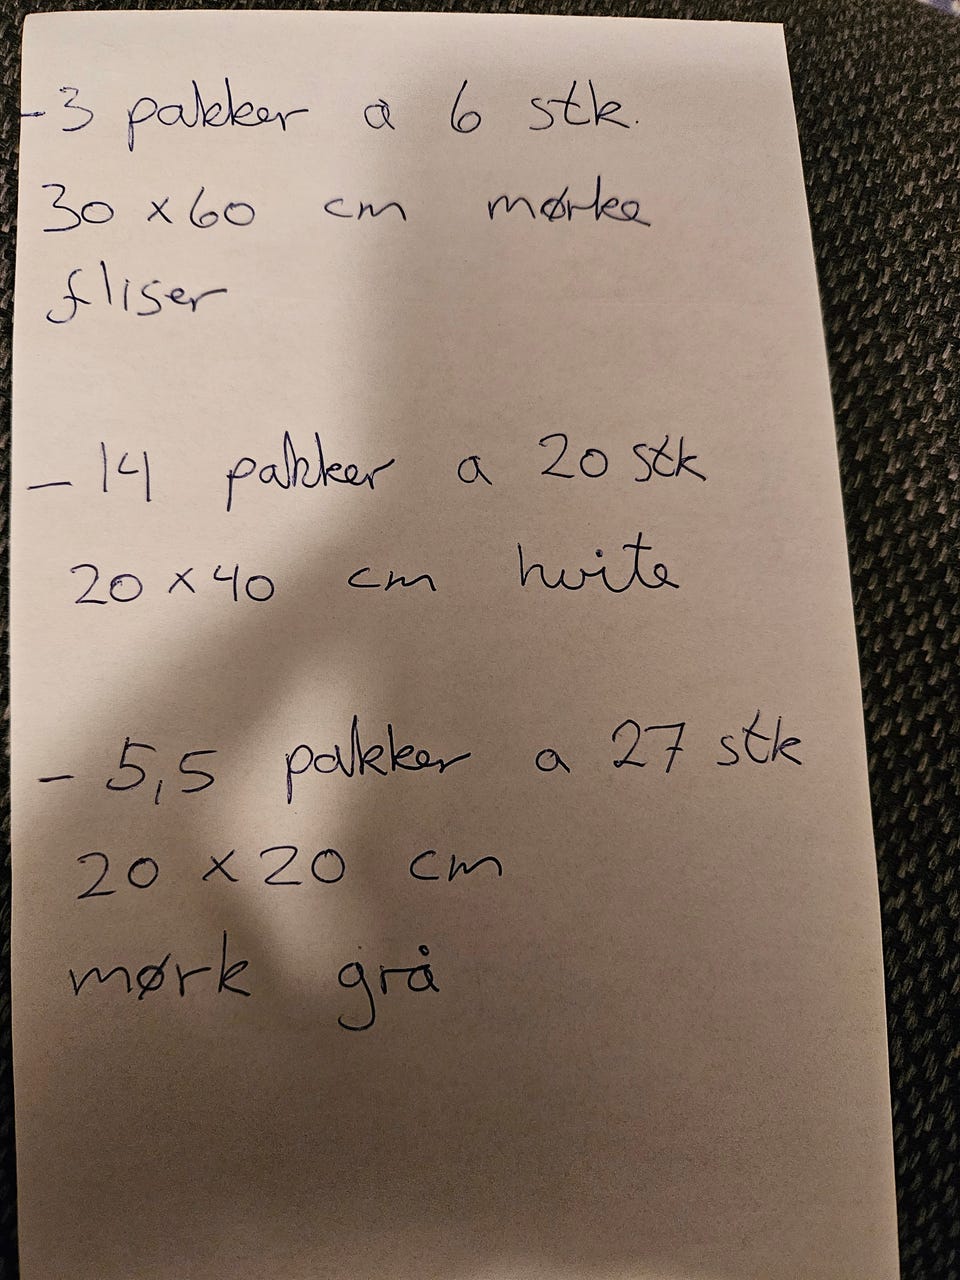 -3 pakker a 6 stk.
30 x 60 cm mørke
fliser
- 14 pakker a 20 stk
20 x 40 cm hvite
- 5,5 pakker a 27 stk
20 x 20 cm
mørk grå